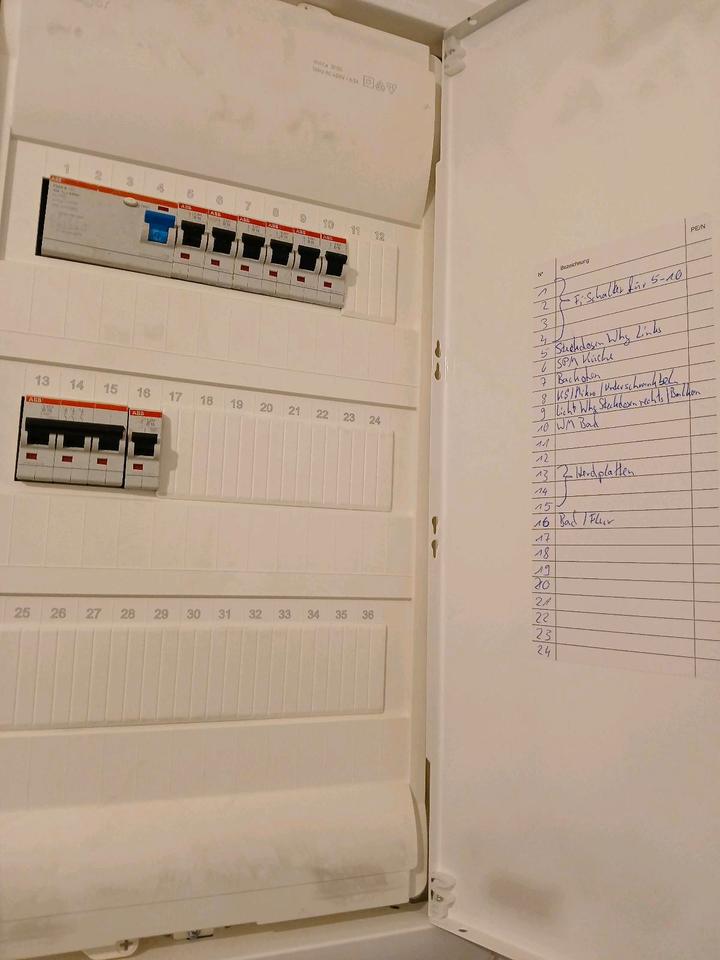 1 2 3 4 5 6 7 8 9 10 11 12
ABB
ABB ABB ABB ABB ABB ABB
13 14 15 16 17 18 19 20 21 22 23 24
ABB ABB
25 26 27 28 29 30 31 32 33 34 35 36
N° Bezeichnung PE/N
1
2 Fi Schalter für 5-10
3
4
5 Steckdosen Whg Links
6 SPM Küche
7 Backofen
8 KS/Mikro/Unterschrankbel.
9 Licht Whg Steckdosen rechts/Balkon
10 WM Bad
11
12
13 Herdplatten
14
15
16 Bad / Flur
17
18
19
20
21
22
23
24